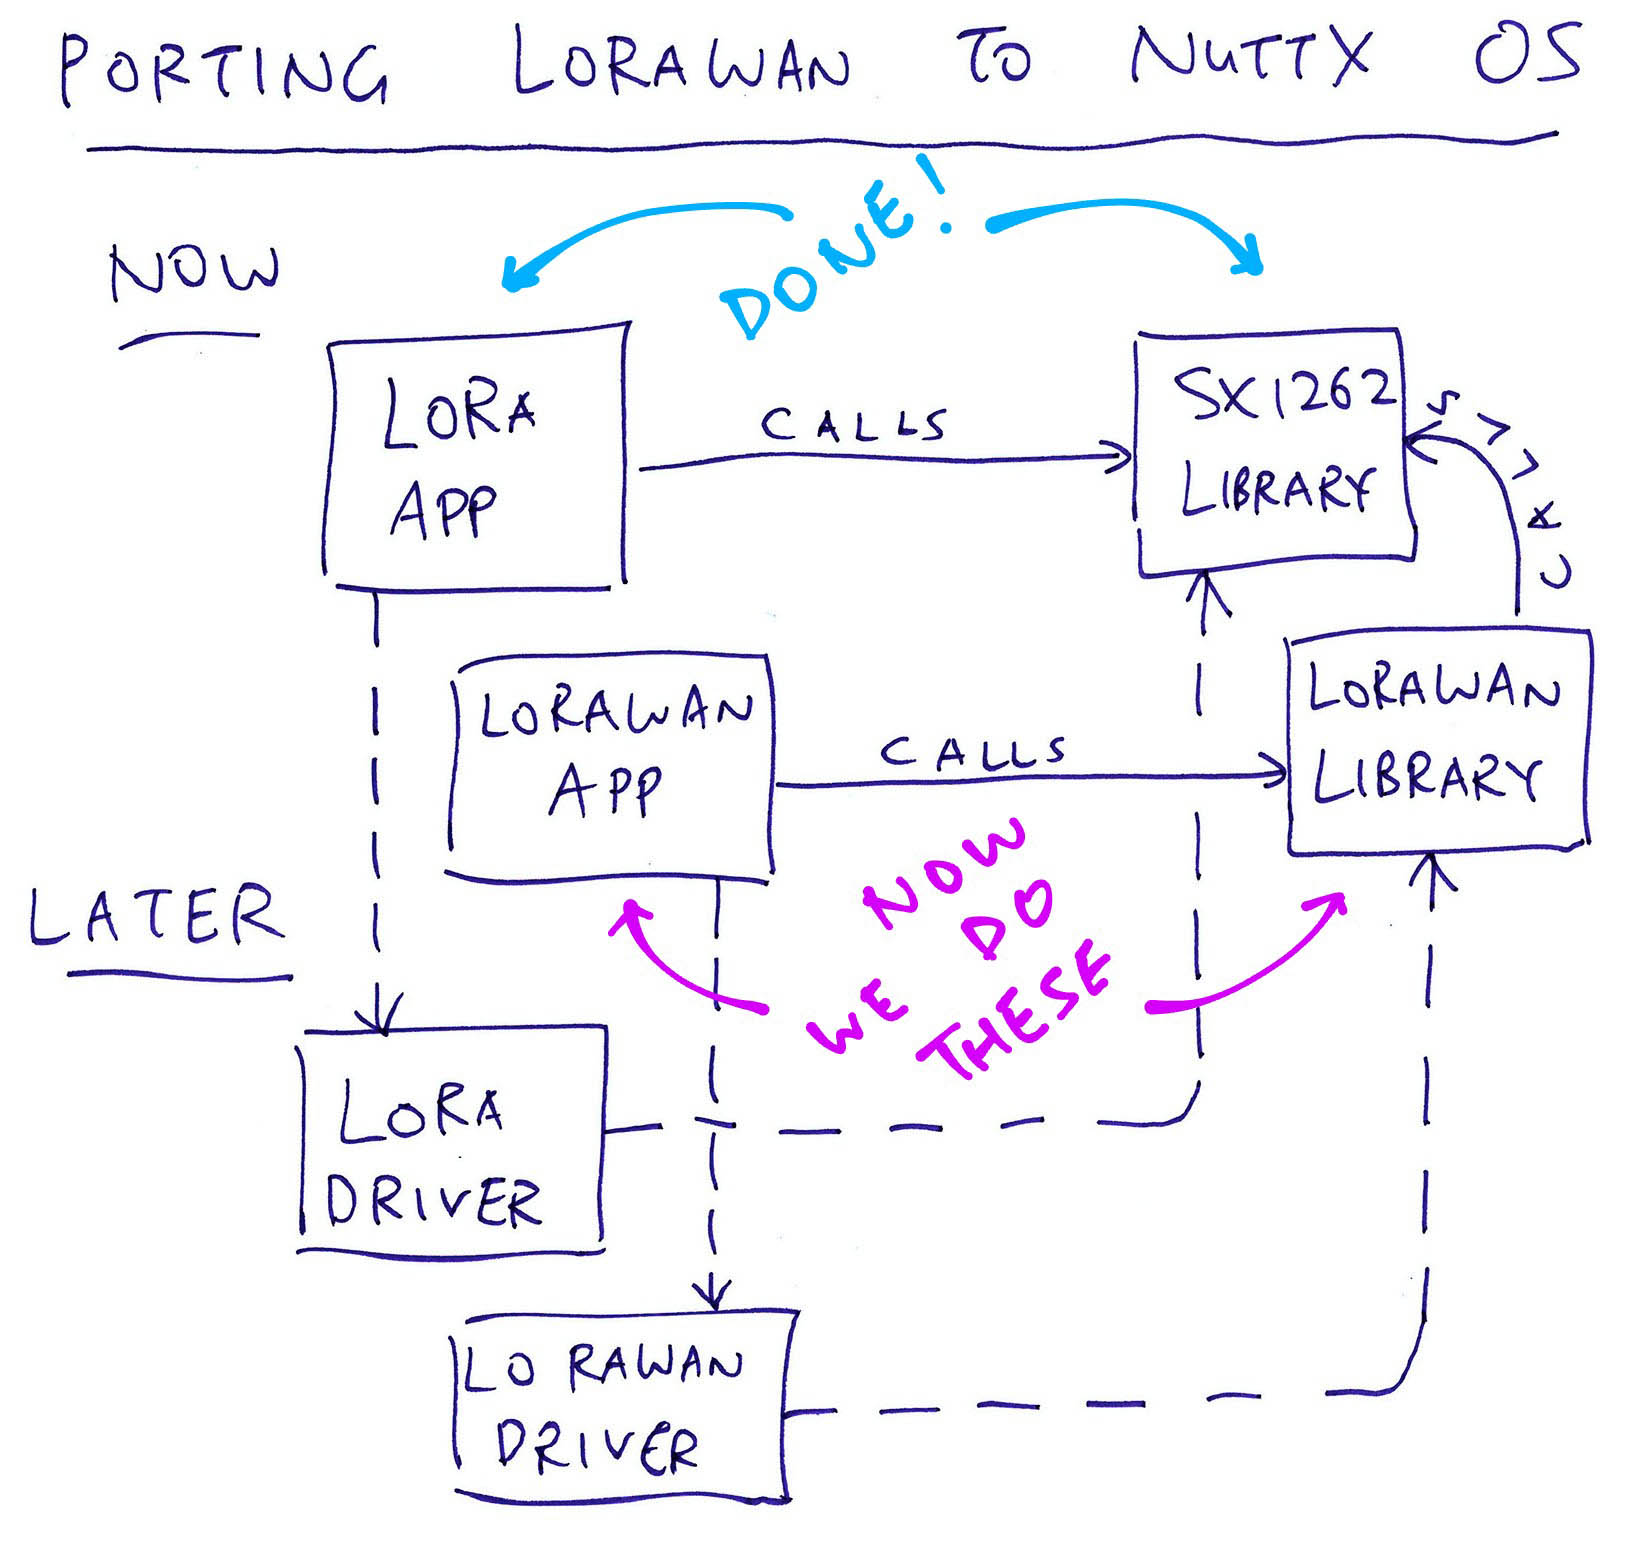 PORTING LORAWAN TO NUTTX OS
DONE!
NOW
LORA
APP
CALLS
SX1262
LIBRARY
CALLS
LORAWAN
APP
CALLS
LORAWAN
LIBRARY
NOW
WE DO
THESE
LATER
LORA
DRIVER
LORAWAN
DRIVER